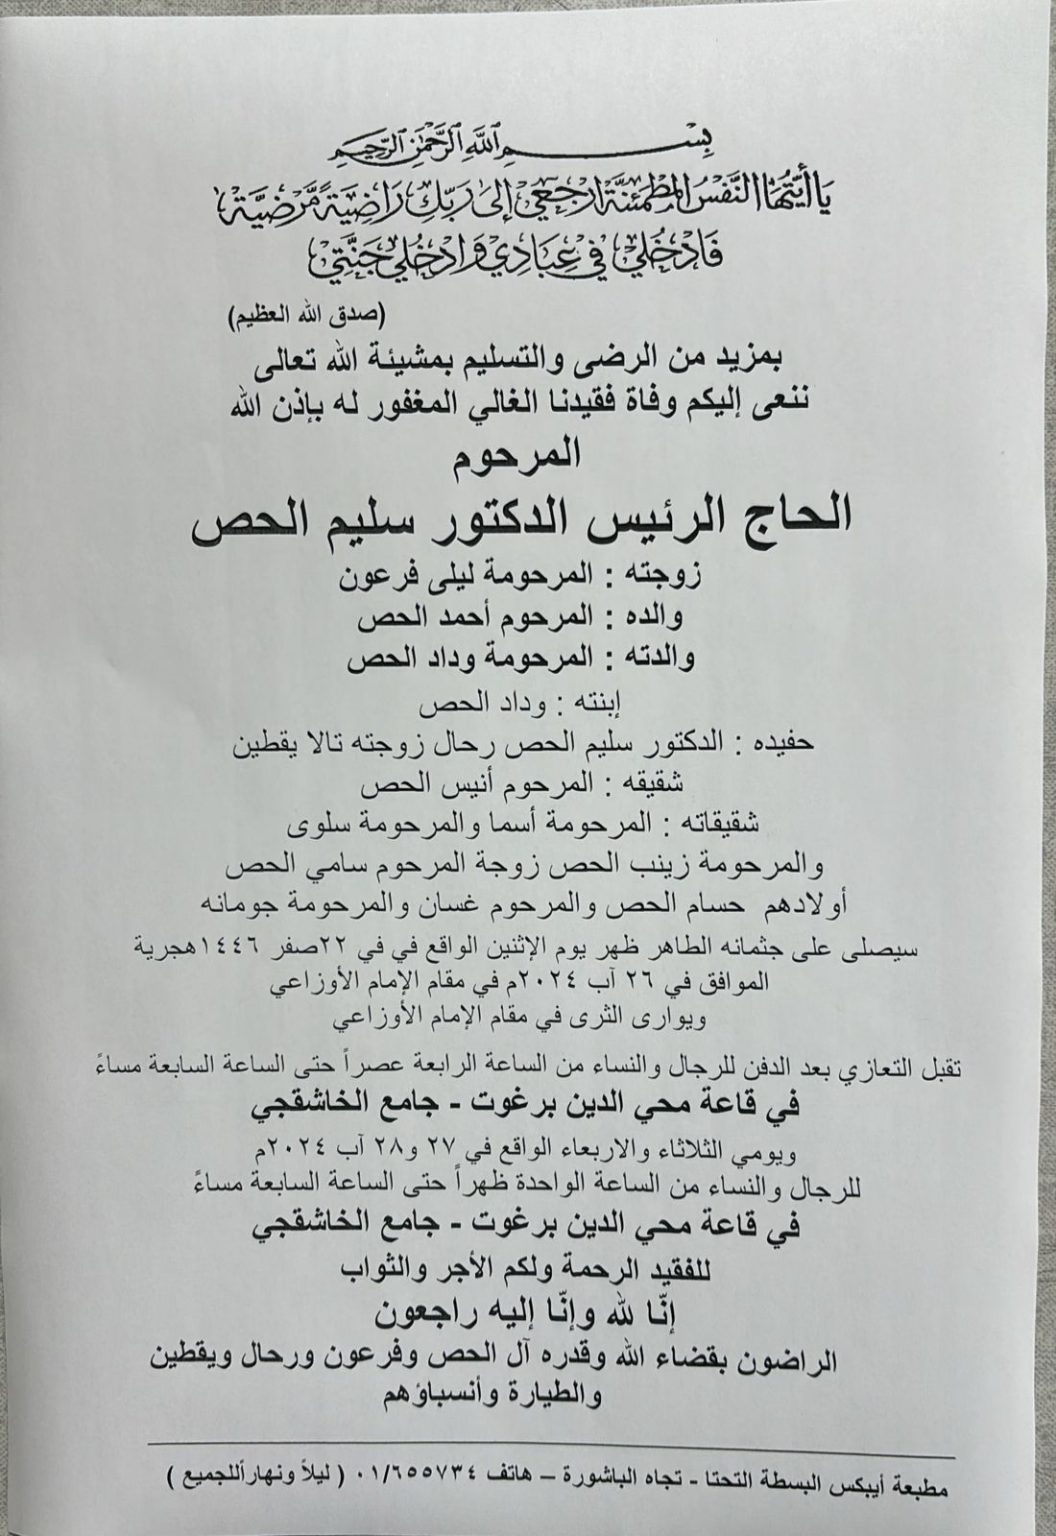 بِسْمِ اللَّهِ الرَّحْمَٰنِ الرَّحِيمِ
يَا أَيَّتُهَا النَّفْسُ المُطْمَئِنَّةُ ارْجِعِي إِلَىٰ رَبِّكِ رَاضِيَةً مَّرْضِيَّةً
فَادْخُلِي فِي عِبَادِي وَادْخُلِي جَنَّتِي
(صدق الله العظيم)
بمزيد من الرضى والتسليم بمشيئة الله تعالى
ننعى إليكم وفاة فقيدنا الغالي المغفور له بإذن الله
المرحوم
الحاج الرئيس الدكتور سليم الحص
زوجته : المرحومة ليلى فرعون
والده : المرحوم أحمد الحص
والدته : المرحومة وداد الحص
إبنته : وداد الحص
حفيده : الدكتور سليم الحص رحال زوجته تالا يقطين
شقيقه : المرحوم أنيس الحص
شقيقاته : المرحومة أسما والمرحومة سلوى
والمرحومة زينب الحص زوجة المرحوم سامي الحص
أولادهم حسام الحص والمرحوم غسان والمرحومة جومانه
سيصلى على جثمانه الطاهر ظهر يوم الإثنين الواقع في في ٢٢صفر ١٤٤٦هجرية
الموافق في ٢٦ آب ٢٠٢٤م في مقام الإمام الأوزاعي
ويوارى الثرى في مقام الإمام الأوزاعي
تقبل التعازي بعد الدفن للرجال والنساء من الساعة الرابعة عصراً حتى الساعة السابعة مساءً
في قاعة محي الدين برغوت - جامع الخاشقجي
ويومي الثلاثاء والاربعاء الواقع في ٢٧ و٢٨ آب ٢٠٢٤م
للرجال والنساء من الساعة الواحدة ظهراً حتى الساعة السابعة مساءً
في قاعة محي الدين برغوت - جامع الخاشقجي
للفقيد الرحمة ولكم الأجر والثواب
إنّا لله وإنّا إليه راجعون
الراضون بقضاء الله وقدره آل الحص وفرعون ورحال ويقطين
والطيارة وأنسباؤهم
مطبعة أيبكس البسطة التحتا - تجاه الباشورة – هاتف ٠١/٦٥٥٧٣٤ ( ليلاً ونهارأللجميع )